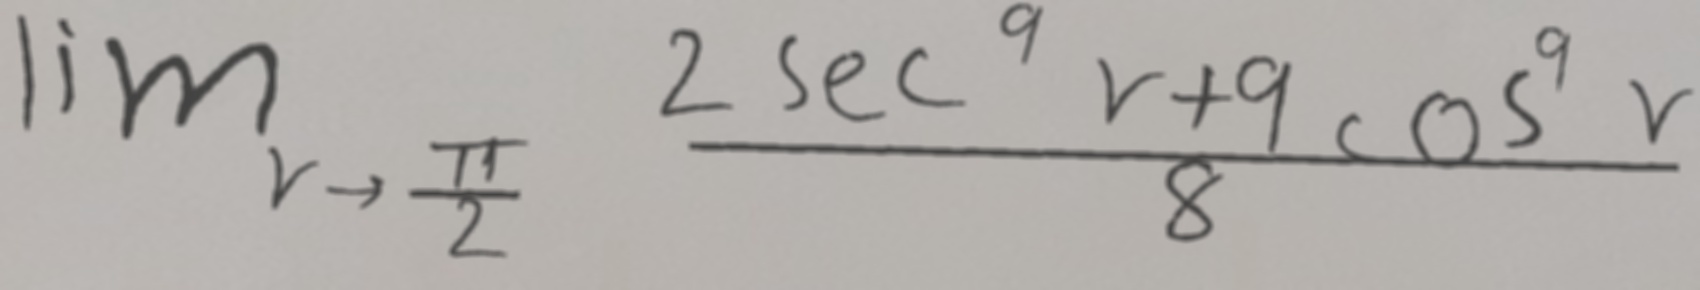 \lim_{r \to \frac{\pi}{2}} \frac{2 \sec^9 r + 9 \cos^9 r}{8}